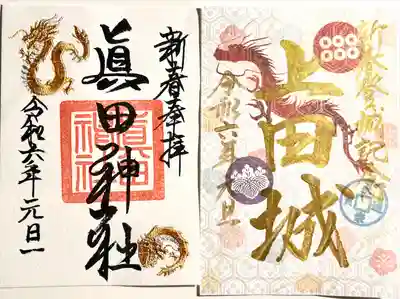 新春奉拝
眞田神社
眞田神社
令和六年元日
新春登城記念
上田城
令和六年元旦